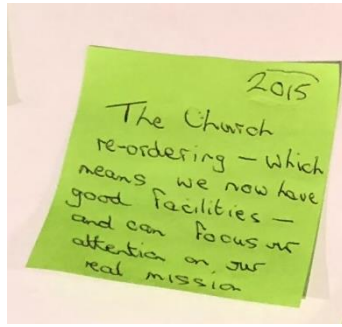 2015
The Church
re-ordering – which
means we now have
good facilities –
and can focus our
attention on our
real mission